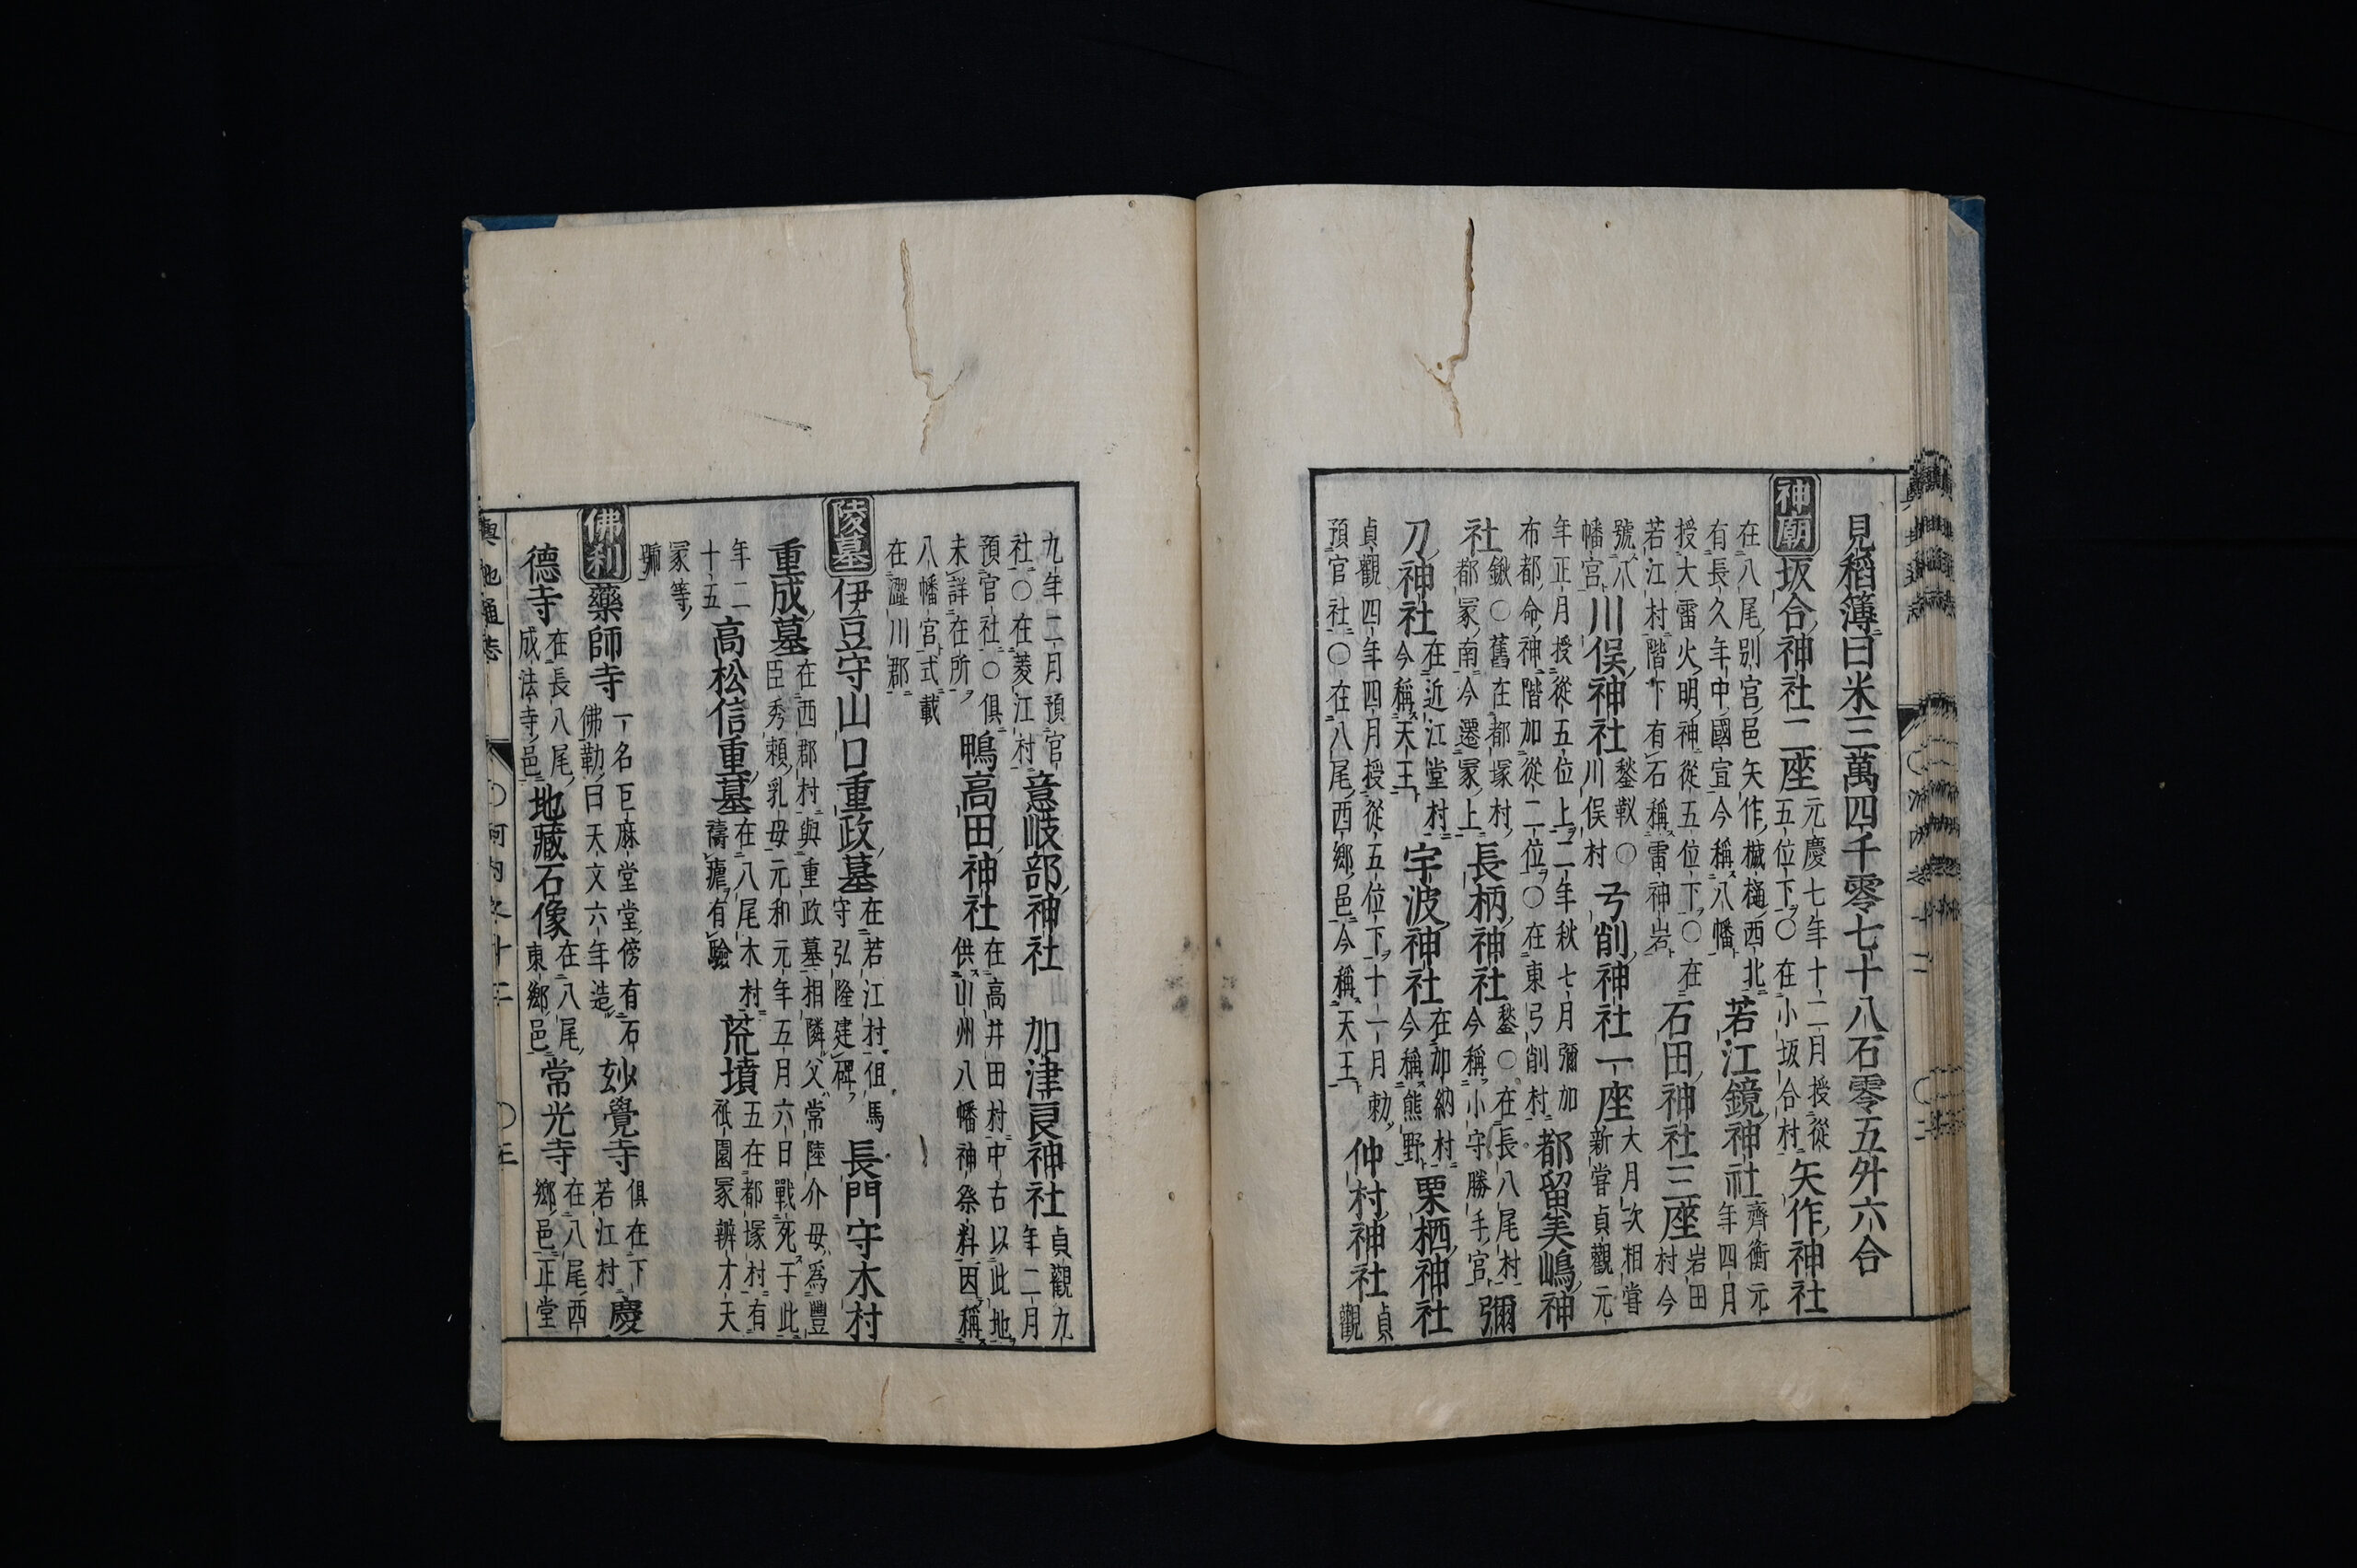 見稻簿曰米三萬四千零七十八石零五升六合
神廟坂合神社二座元慶七年十二月授從五位下○在小坂合村矢作神社
在八尾別宮邑矢作樾樋西北有長久年中國宣今稱八幡若江鏡神社齊衡元年四月
授大雷火明神從五位下○在若江村階下有石稱雷神岩石田神社三座岩田村今
號八幡宮川俣神社鍫靫○川俣村弓削神社一座大月次相嘗新嘗貞觀元
年正月授從五位上二年秋七月彌加布都命神階加從二位○在東弓削村都留美嶋神
社鍬○舊在都塚村都冢南今遷冢上長柄神社鍫○在長八尾村今稱小守勝手宮彌
刀神社在近江堂村今稱天王宇波神社在加納村今稱熊野栗栖神社
貞觀四年四月授從五位下十一月勅預官社○在八尾西鄉邑今稱天王仲村神社貞觀
九年二月預官社○在菱江村意岐部神社加津良神社貞觀九年二月
預官社○俱未詳在所鴨高田神社在高井田村中古以此地供山州八幡神祭料因稱
八幡宮式載在澀川郡
陵墓伊豆守山口重政墓在若江村俎馬守弘隆建碑長門守木村
重成墓在西郡村與重政墓相隣父常陸介母爲豐臣秀頼乳母元和元年五月六日戰死于此
年二十五高松信重墓在八尾木村禱瘧有驗荒墳五在都塚村有祇園冢辨才天
冢等號
佛刹藥師寺一名巨麻堂堂傍有石佛勒曰天文六年造玅覺寺俱在下若江村慶
德寺在長八尾成法寺邑地藏石像在八尾東鄉邑常光寺在八尾西鄉邑正堂
輿地通志 ○河内之十二 ○三